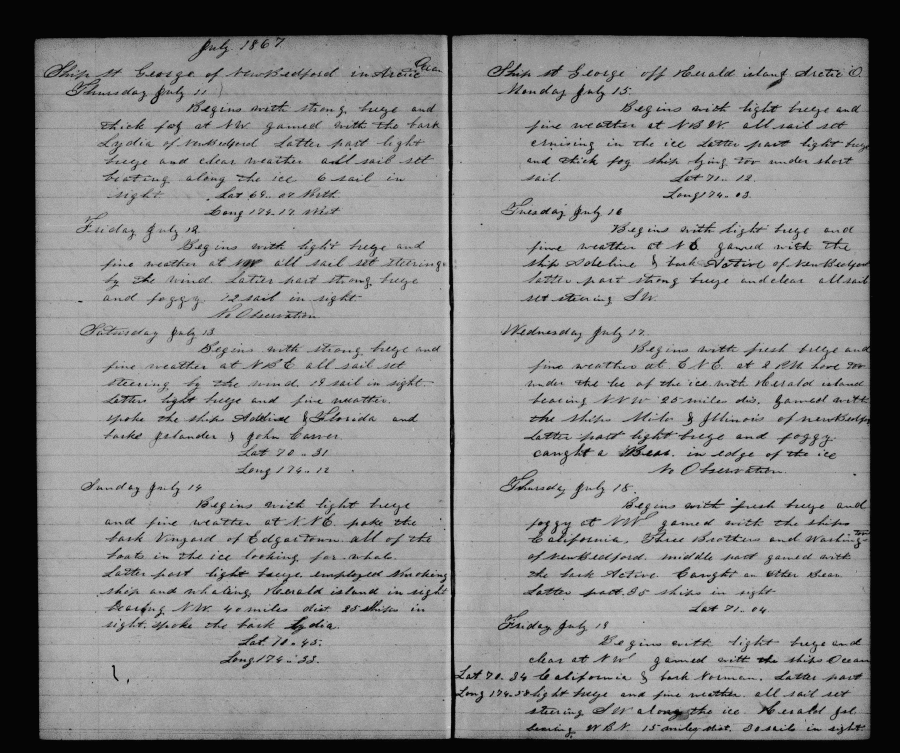 July 1867
Ship St George of NewBedford in Arctic Ocean
Thursday July 11
Begins with strong breze and
thick fog at NW gamed with the bark
Lydia of NewBedford Latter part light
breze and clear weather all sail set
beating along the ice 6 sail in
sight. Lat 69.. 07 North
Long 174.17 West
Friday July 12
Begins with light breze and
fine weather at NW all sail set steering
by the wind. Latter part strong breze
and foggy. 12 sail in sight
No Observation
Saturday July 13
Begins with strong breze and
fine weather at NBE all sail set
steering by the wind. 19 sail in sight
Latter light breze and fine weather.
spoke the ships Adeline & Florida and
barks Islander & John Carver
Lat 70..31
Long 174..12
Sunday July 14
Begins with light breze
and fine weather at NNE. spoke the
bark Vinyard of Edgartown. all of the
boats in the ice looking for whale.
Latter part light breze employed Smoking
ship and whaling Herald island in sight
bearing N.W. 40 miles dist 25 Ships in
sight. spoke the bark Lydia.
Lat. 70..45.
Long 174..33.
Ship St George off Herald island Arctic O.
Monday July 15.
Begins with light breze and
fine weather at NBW. all sail set
cruising in the ice Latter part light breze
and thick fog ship lying too under short
sail. Lat 71..12.
Long 174..03
Tuesday July 16
Begins with light breze and
fine weather at NE gamed with the
ship Adeline & bark Active of NewBedford
latter part strong breze and clear all sail
set steering SW.
Wednesday July 17.
Begins with fresh breze and
fine weather at ENE. at 2 PM hove too
under the lee of the ice with Herald island
bearing NNW 25 miles dis. gamed with
the Ships Milo & Illinois of NewBedford
Latter part light breze and foggy.
caught a Bear. in edge of the ice
No Observation.
Thursday July 18.
Begins with fresh breze and
foggy at NW gamed with the ships
California. Three Brothers and Washington
of NewBedford. middle part gamed with
the bark Active. Caught an other Bear
Latter part 35 ships in sight
Lat 71.04
Friday July 19
Begins with light breze and
clear at NW gamed with the ships Ocean
Lat 70.34 California & bark Norman. Latter part
Long 174.58 light breze and fine weather. all sail set
steering SW along the ice. Herald Isl
bearing WBN. 15 miles dist. 30 sails in sight